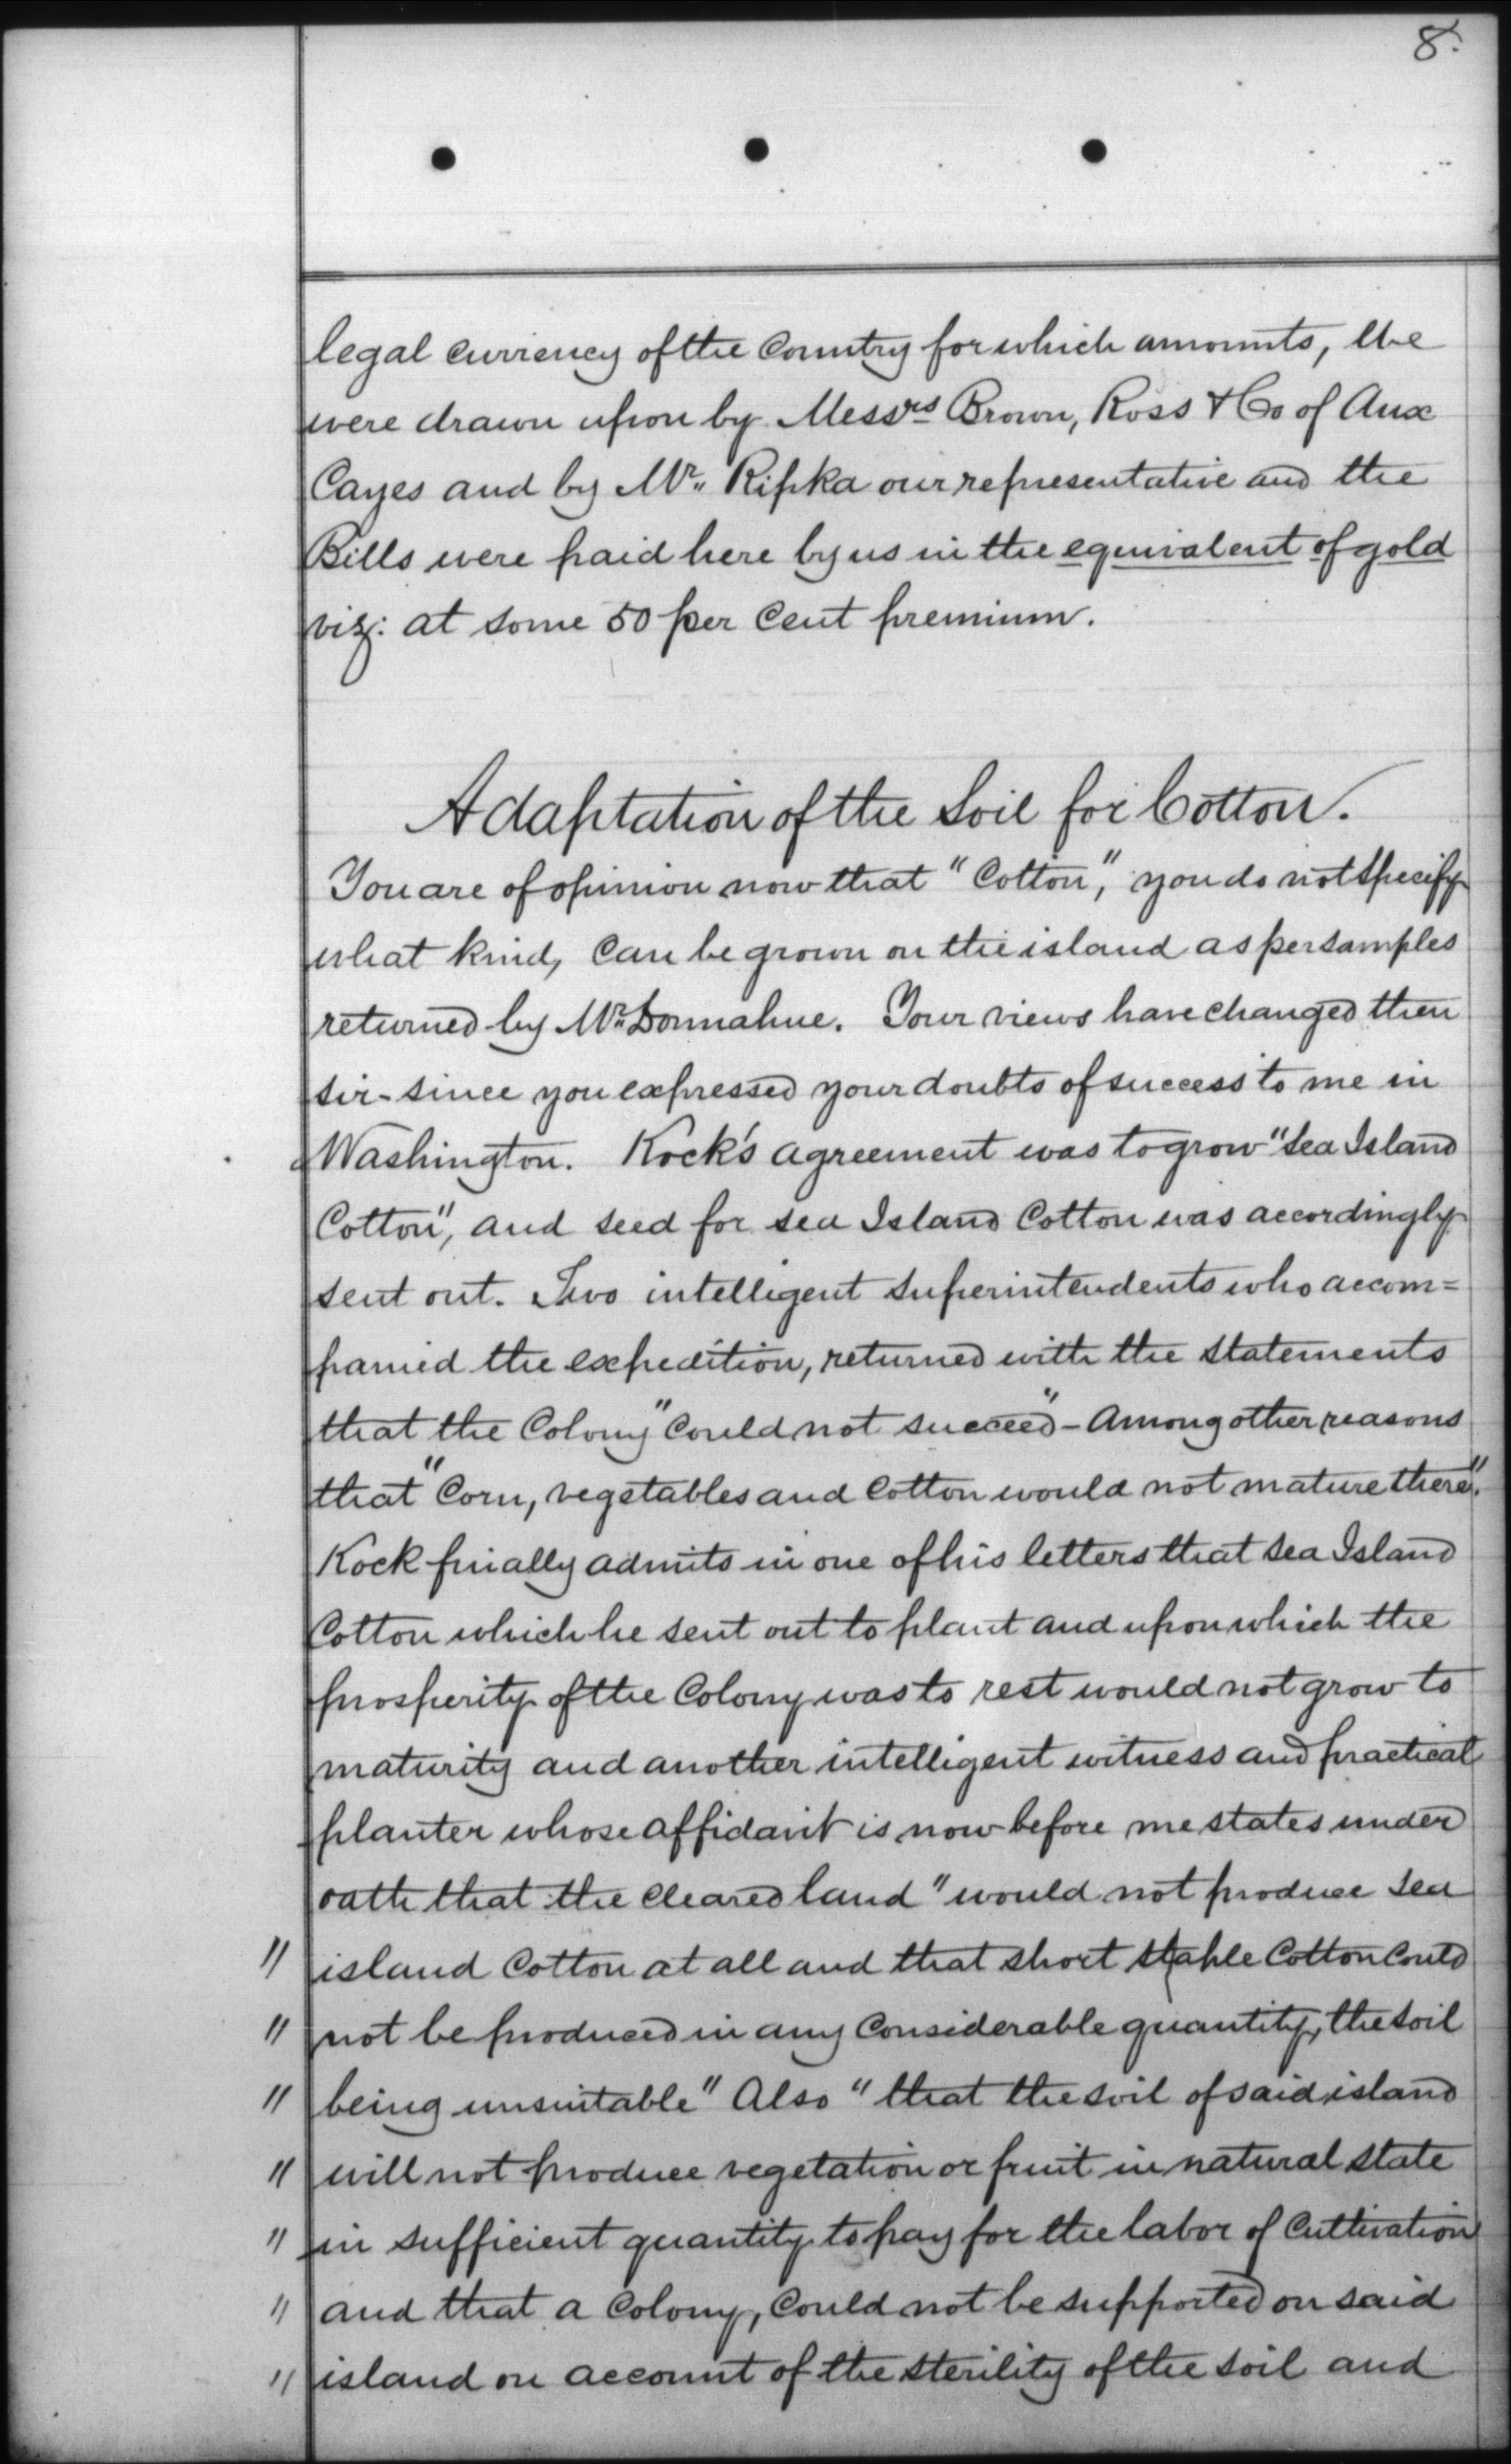 8.
legal currency of the Country for which amounts, the
were drawn upon by Messrs Brown, Ross & Co of Aux
Cayes and by Mr. Ripka our representative and the
Bills were paid here by us in the equivalent of gold
viz: at some 50 per Cent premium.
Adaptation of the Soil for Cotton.
You are of opinion now that "Cotton", you do not specify
what kind, Can be grown on the island as per samples
returned by Mr Donnahue. Your views have changed then
sir - since you expressed your doubts of success to me in
Washington. Kock's agreement was to grow "Sea Island
Cotton", and seed for sea Island Cotton was accordingly
sent out. Two intelligent Superintendents who accom=
panied the expedition, returned with the statements
that the Colony "Could not succeed" - Among other reasons
that "Corn, vegetables and Cotton would not mature there".
Kock finally admits in one of his letters that Sea Island
Cotton which he sent out to plant and upon which the
prosperity of the Colony was to rest would not grow to
maturity and another intelligent witness and practical
planter whose affidavit is now before me states under
oath that the cleared land "would not produce Sea
" island Cotton at all and that short staple Cotton Could
" not be produced in any Considerable quantity, the soil
" being unsuitable" Also "that the soil of said island
" will not produce vegetation or fruit in natural state
" in sufficient quantity to pay for the labor of Cultivation
" and that a Colony, Could not be supported on said
" island on account of the sterility of the soil and